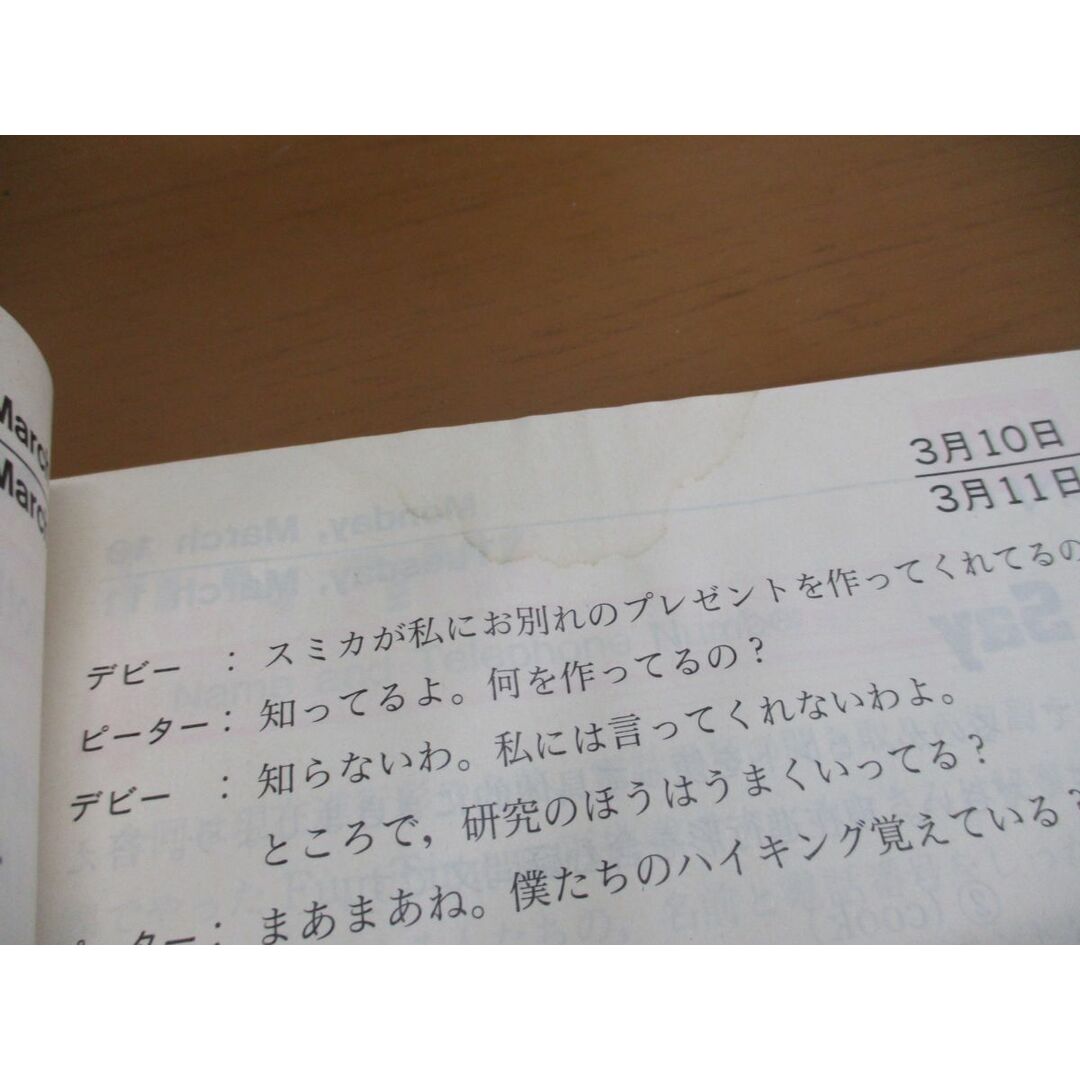 March
March
3月10日
3月11日
デビー : スミカが私にお別れのプレゼントを作ってくれてるの
ピーター : 知ってるよ。何を作ってるの？
デビー : 知らないわ。私には言ってくれないわよ。
ところで，研究のほうはうまくいってる？
ーター : まあまあね。僕たちのハイキング覚えている？